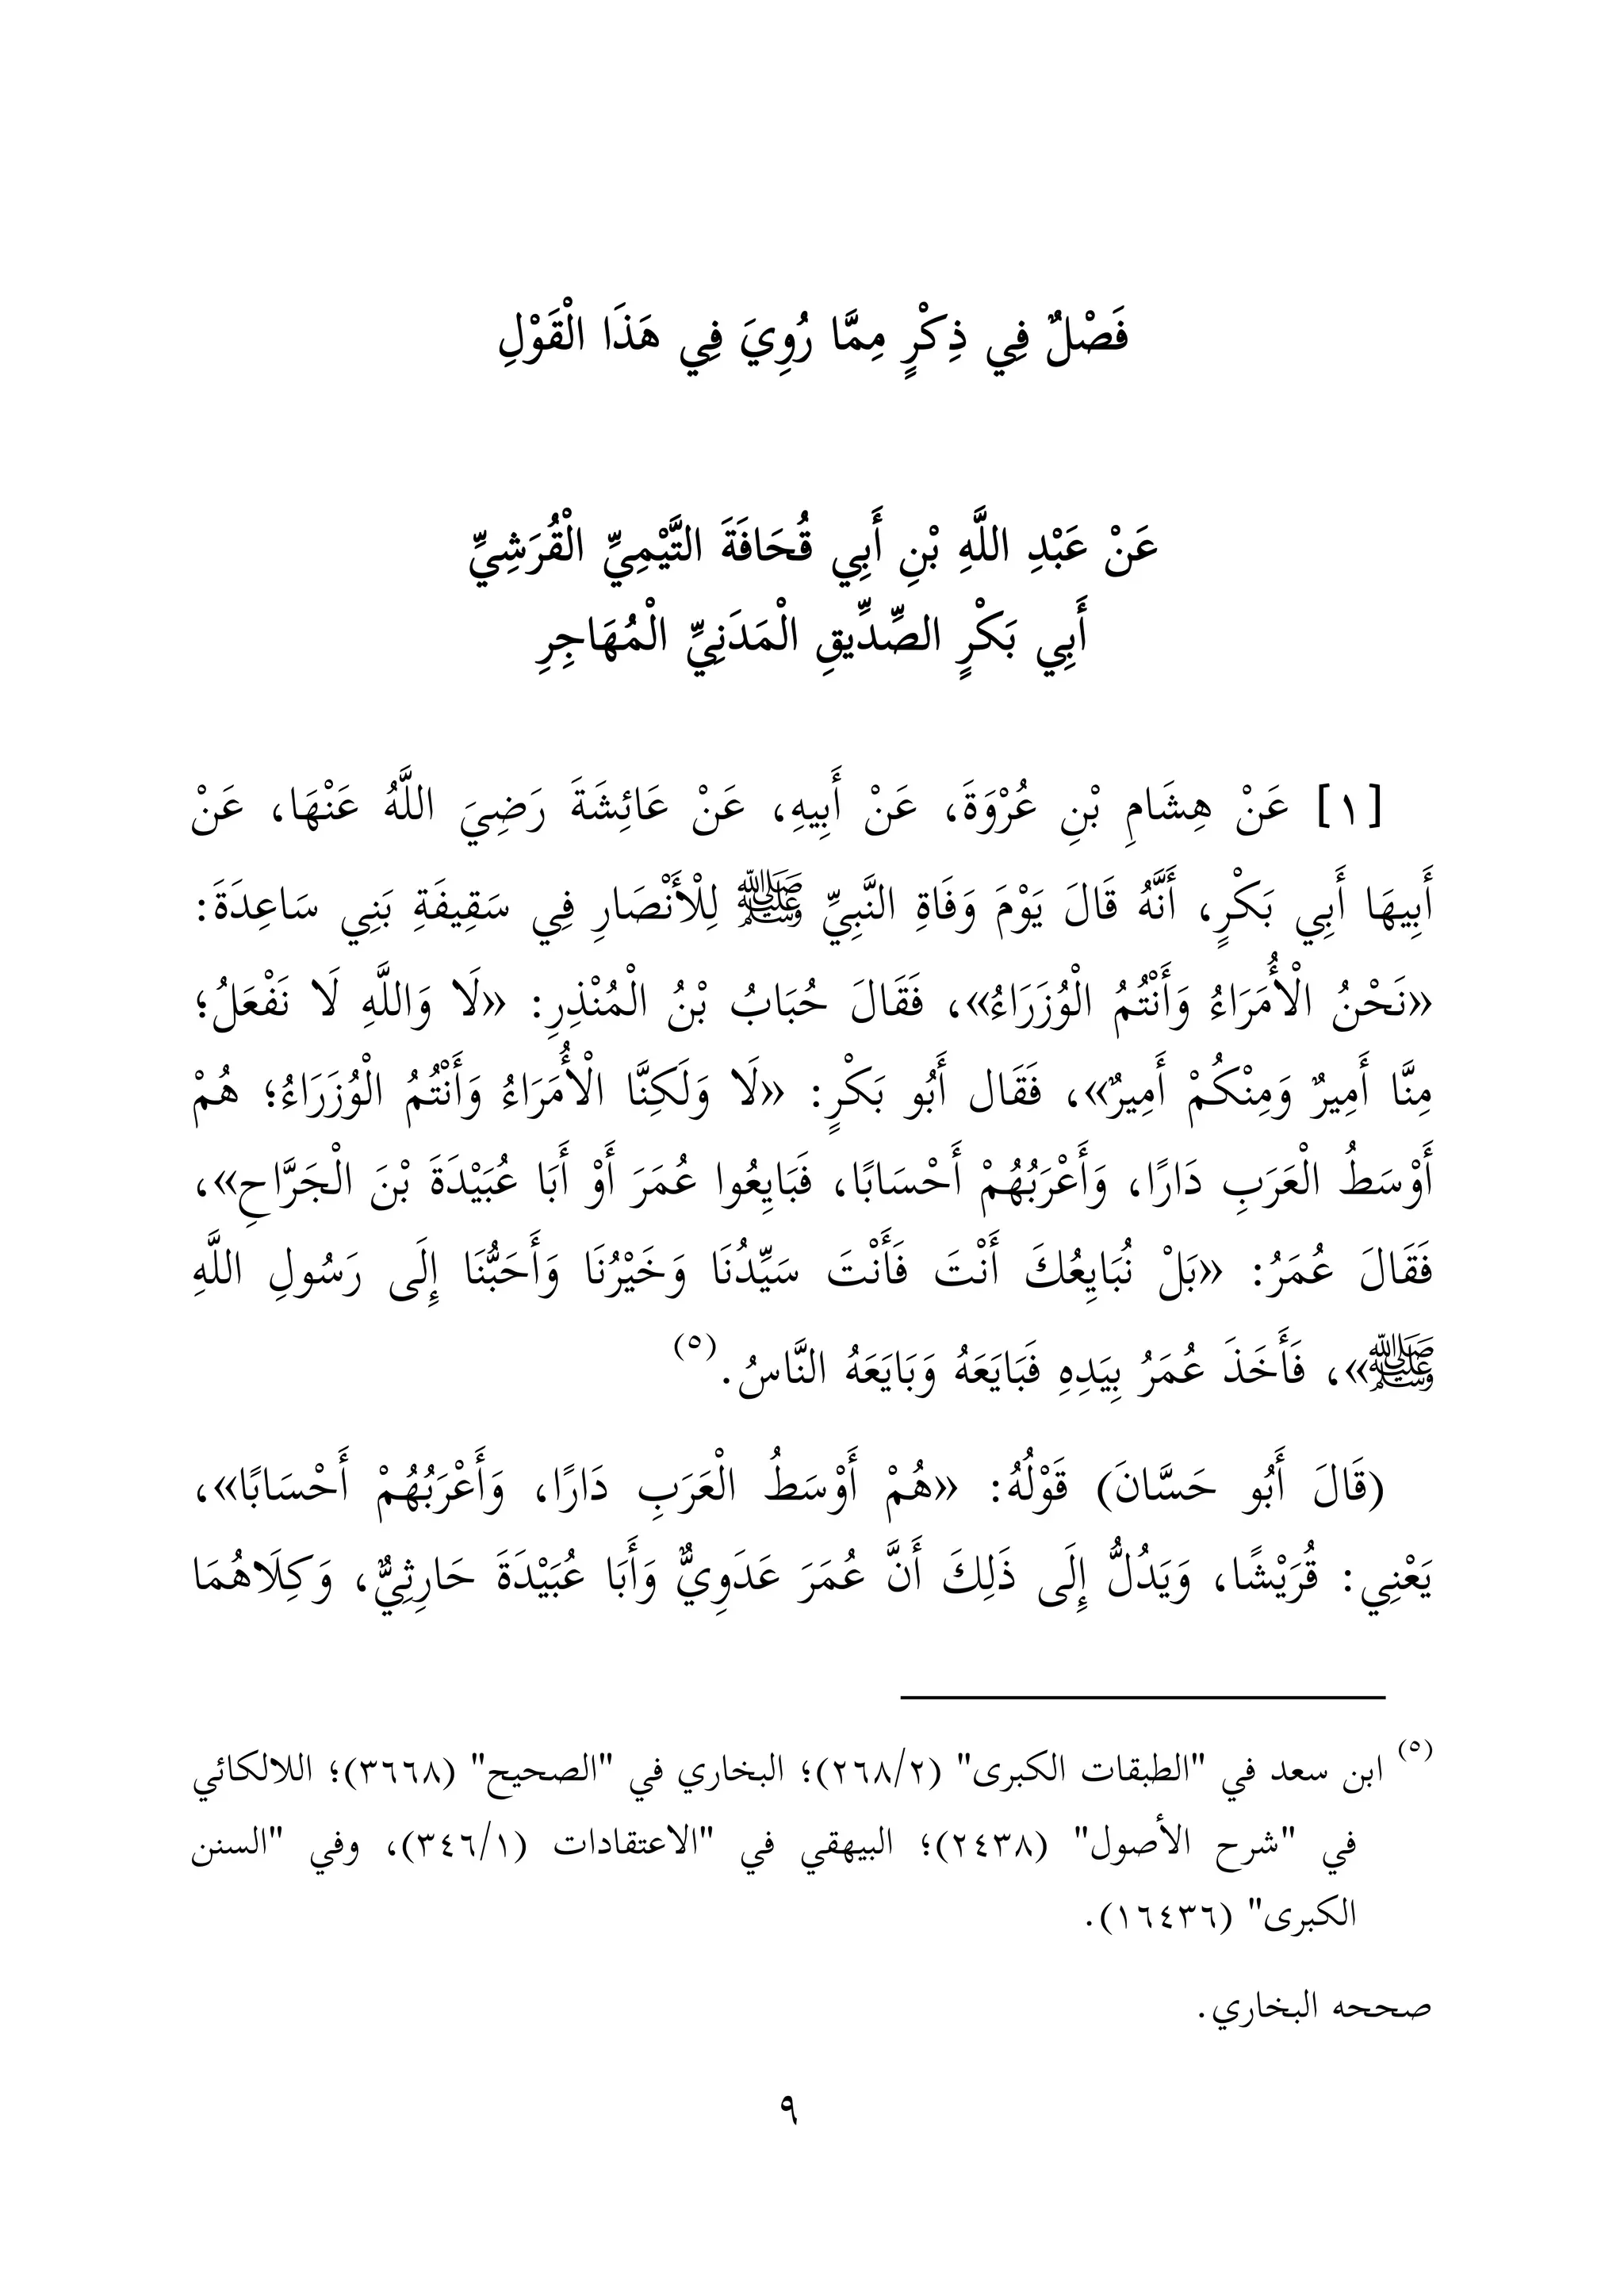 فَصْلٌ فِي ذِكْرٍ مِمَّا رُوِيَ فِي هَذَا الْقَوْلِ
عَنْ عَبْدِ اللَّهِ بْنِ أَبِي قُحَافَةَ التَّيْمِيِّ الْقُرَشِيِّ
أَبِي بَكْرٍ الصِّدِّيقِ الْمَدَنِيِّ الْمُهَاجِرِ
[١] عَنْ هِشَامِ بْنِ عُرْوَةَ، عَنْ أَبِيهِ، عَنْ عَائِشَةَ رَضِيَ اللَّهُ عَنْهَا، عَنْ
أَبِيهَا أَبِي بَكْرٍ، أَنَّهُ قَالَ يَوْمَ وَفَاةِ النَّبِيِّ ﷺ لِلْأَنْصَارِ فِي سَقِيفَةِ بَنِي سَاعِدَةَ:
«نَحْنُ الْأُمَرَاءُ وَأَنْتُمُ الْوُزَرَاءُ»، فَقَالَ حُبَابُ بْنُ الْمُنْذِرِ: «لَا وَاللَّهِ لَا نَفْعَلُ؛
مِنَّا أَمِيرٌ وَمِنْكُمْ أَمِيرٌ»، فَقَال أَبُو بَكْرٍ: «لَا وَلَكِنَّا الْأُمَرَاءُ وَأَنْتُمُ الْوُزَرَاءُ؛ هُمْ
أَوْسَطُ الْعَرَبِ دَارًا، وَأَعْرَبُهُمْ أَحْسَابًا، فَبَايِعُوا عُمَرَ أَوْ أَبَا عُبَيْدَةَ بْنَ الْجَرَّاحِ»،
فَقَالَ عُمَرُ: «بَلْ نُبَايِعُكَ أَنْتَ فَأَنْتَ سَيِّدُنَا وَخَيْرُنَا وَأَحَبُّنَا إِلَى رَسُولِ اللَّهِ
ﷺ»، فَأَخَذَ عُمَرُ بِيَدِهِ فَبَايَعَهُ وَبَايَعَهُ النَّاسُ.(٥)
(قَالَ أَبُو حَسَّانَ) قَوْلُهُ: «هُمْ أَوْسَطُ الْعَرَبِ دَارًا، وَأَعْرَبُهُمْ أَحْسَابًا»،
يَعْنِي: قُرَيْشًا، وَيَدُلُّ إِلَى ذَلِكَ أَنَّ عُمَرَ عَدَوِيٌّ وَأَبَا عُبَيْدَةَ حَارِثِيٌّ، وَكِلَاهُمَا
(٥) ابن سعد في "الطبقات الكبرى" (٢٦٨/٢)؛ البخاري في "الصحيح" (٣٦٦٨)؛ اللالكائي
في "شرح الأصول" (٢٤٣٨)؛ البيهقي في "الاعتقادات (٣٤٦/١)، وفي "السنن
الكبرى" (١٦٤٣٦).
صححه البخاري.
٩